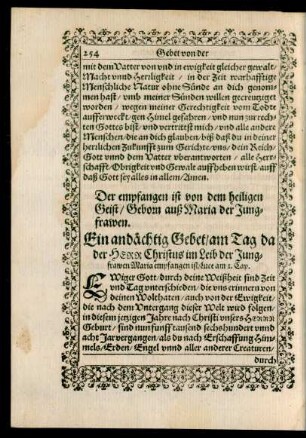 254 Gebet von der
mit dem Vatter von vnd in ewigkeit gleicher gewalt/
Macht vnnd Herrligkeit / in der Zeit warhafftige
Menschliche Natur ohne Sünde an dich genom-
men hast / vmb meiner Sünden willen gecreutziget
worden / wegen meiner Gerechtigkeit vom Todte
aufferweckt, gen Himel gefahren / vnd nun zur rech-
ten Gottes bist / vnd vertrittest mich / vnd alle andere
Menschen / die an dich glauben, biß daß du in deiner
herrlichen Zukunfft zum Gerichte / vns / dein Reich/
Gott vnnd dem Vatter vberantworten / alle Herr-
schafft / Obrigkeit vnd Gewalt auffheben wirst / auff
daß Gott sey alles in allem / Amen.
Der empfangen ist von dem heiligen
Geist / Geborn auß Maria der Jung-
frawen.
Ein andächtig Gebet / am Tag da
der HERR Christus im Leib der Jung-
frawen Maria empfangen ist /
EWiger Gott / durch deine Weißheit sind Zeit
vnd Tag vnterschieden / die vns erinnern von
deinen Wolthaten / auch von der Ewigkeit/
die nach dem Vntergang dieser Welt wird folgen/
in diesem jetzigen Jahre nach Christi vnsers HERRN
Geburt / sind nun fünff tausend sechshundert vnnd
acht Jar vergangen / als du nach Erschaffung Him-
mels / Erden / Engel vnnd aller anderer Creaturen/
durch